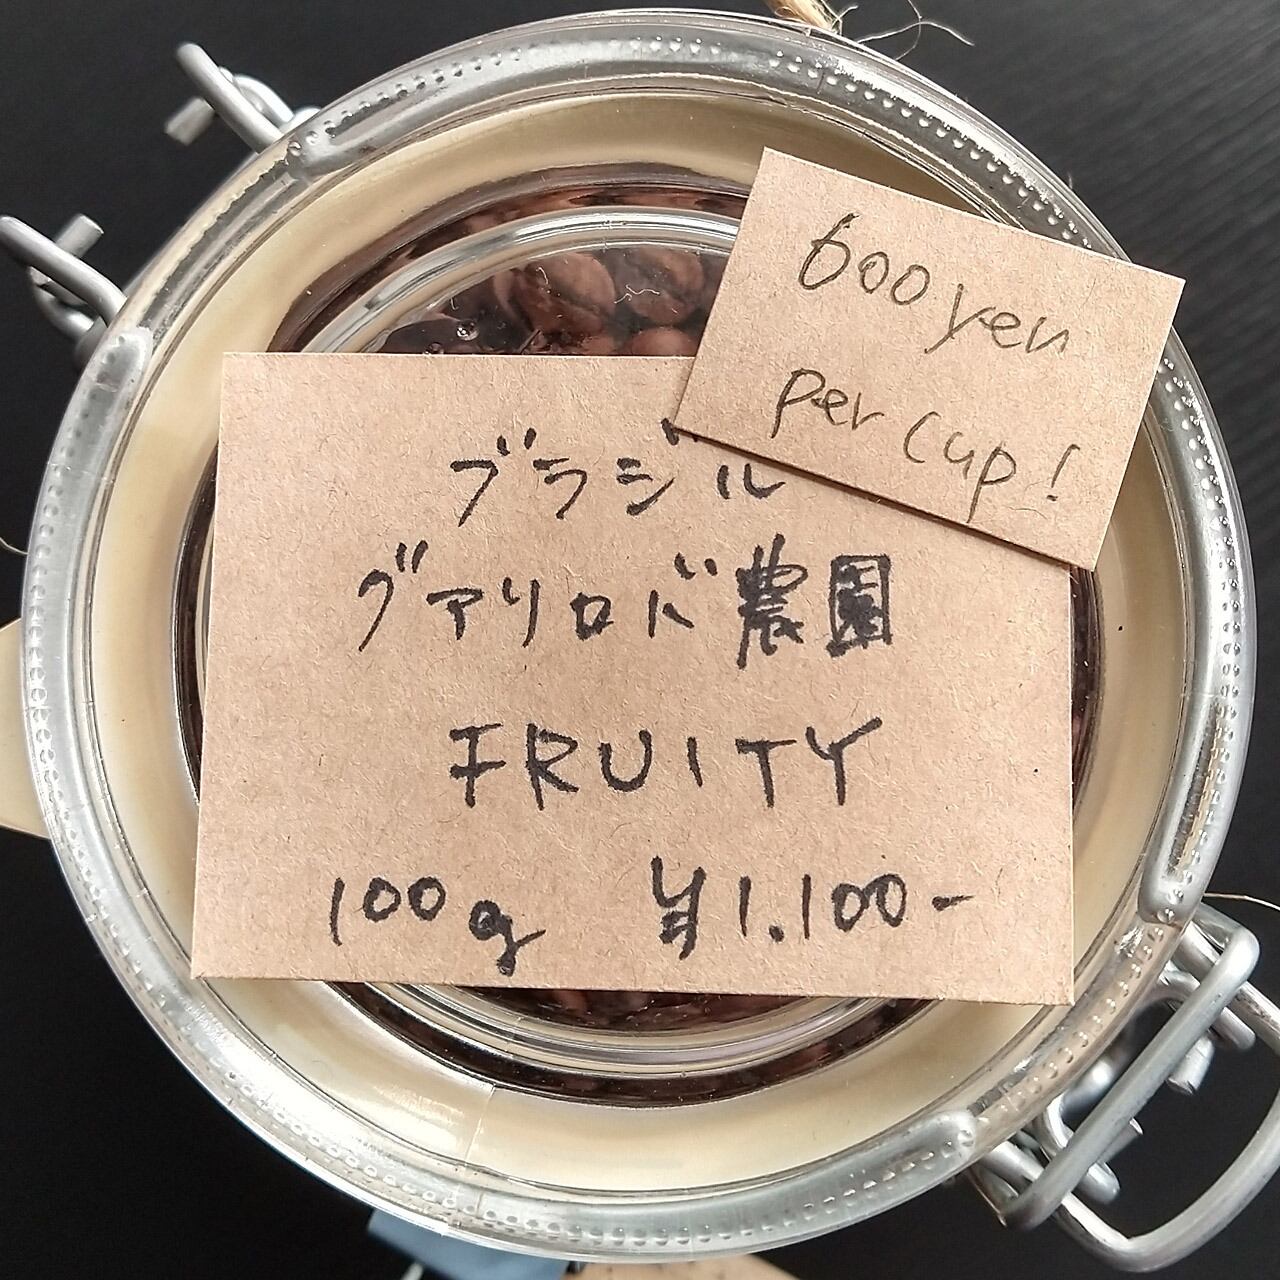 600 yen
per cup!
ブラジル
グァリロバ農園
FRUITY
100g ¥1.100-